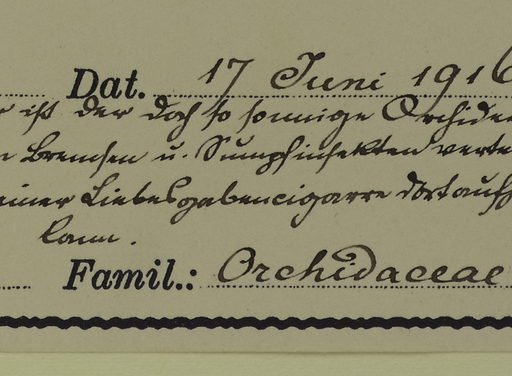 Dat. 17 Juni 1916
ist der doch so sonnige Orchideen
n Bremsen u. Sumpfinsekten verte
einer Liebesgabencigarre dort aufh
kann.
Famil.: Orchidaceae